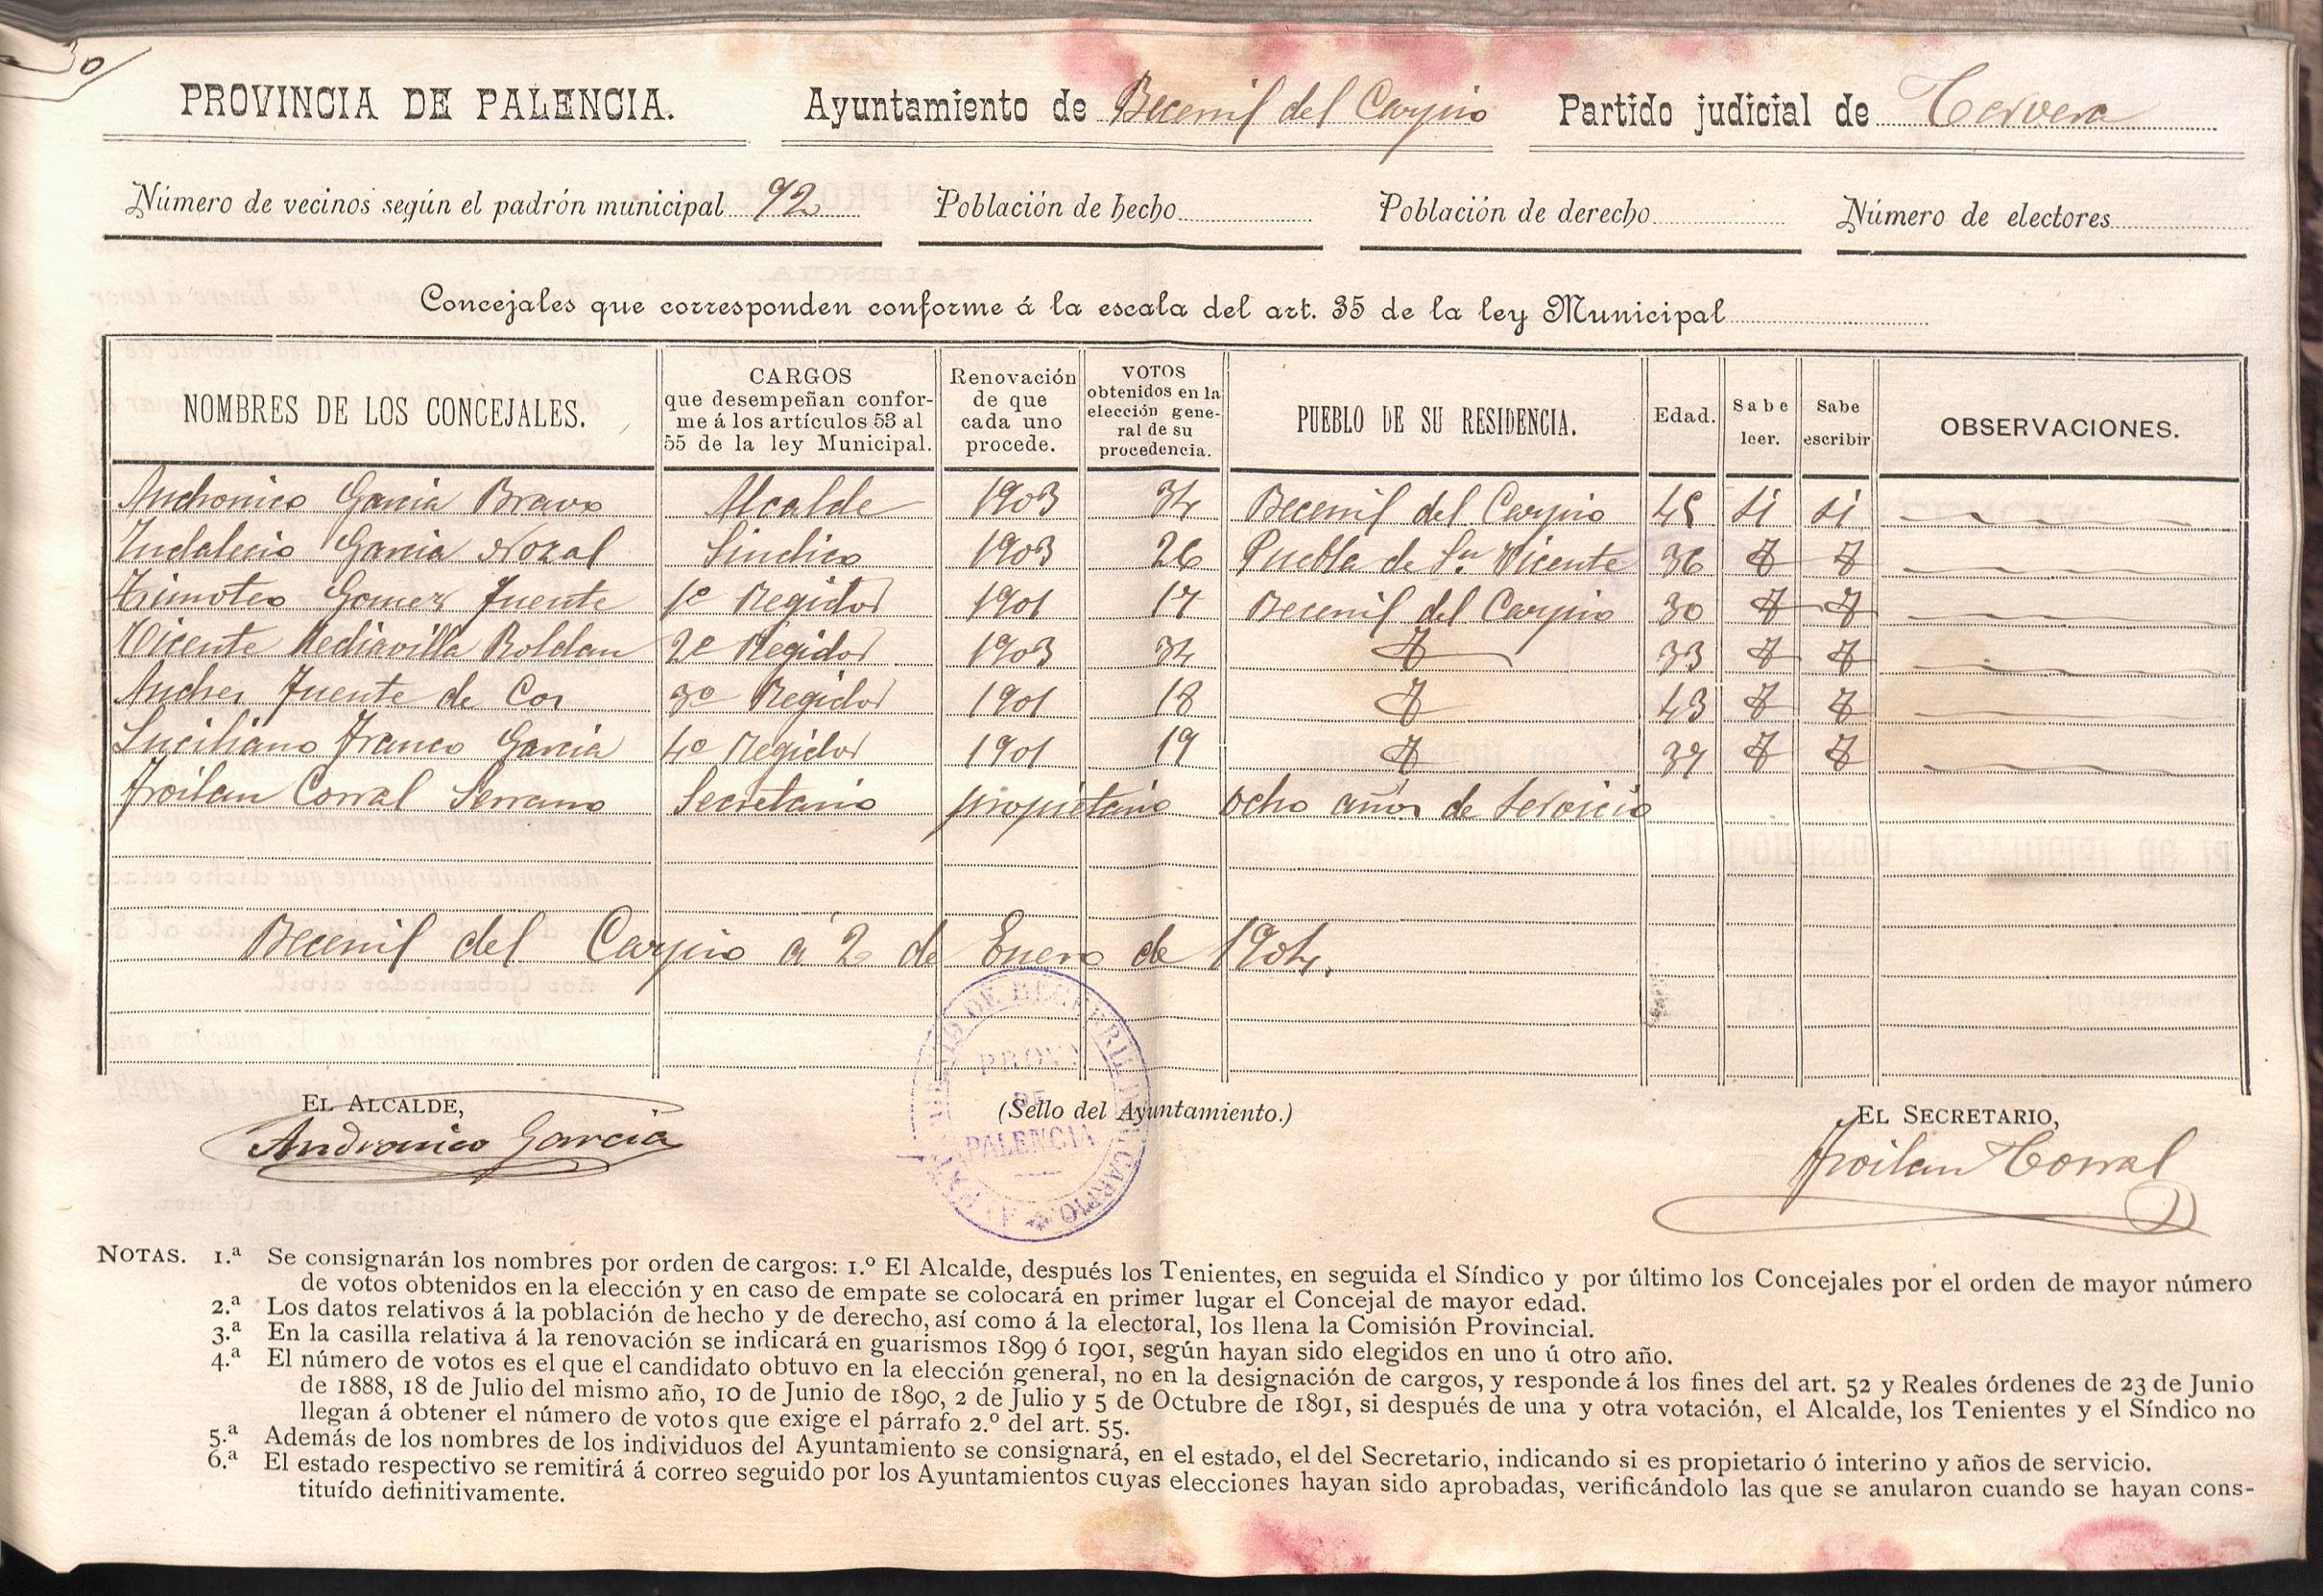 30
PROVINCIA DE PALENCIA. Ayuntamiento de Becerril del Carpio Partido judicial de Cervera
Número de vecinos según el padrón municipal 92 Población de hecho Población de derecho Número de electores
Concejales que corresponden conforme á la escala del art. 35 de la ley Municipal
NOMBRES DE LOS CONCEJALES. CARGOS que desempeñan conforme á los artículos 53 al 55 de la ley Municipal. Renovación de que cada uno procede. VOTOS obtenidos en la elección general de su procedencia. PUEBLO DE SU RESIDENCIA. Edad. Sabe leer. Sabe escribir OBSERVACIONES.
Andronico Garcia Bravo Alcalde 1903 34 Becerril del Carpio 45 si si
Indalecio Garcia Nozal Sindico 1903 26 Puebla de Sn. Vicente 36
Timoteo Gomez Fuente 1º Regidor 1901 17 Becerril del Carpio 30
Vicente Mediavilla Roldan 2º Regidor 1903 34 33
Andres Fuente de Cos 3º Regidor 1901 18 43
Luciliano Franco Garcia 4º Regidor 1901 19
Froilan Corral Serrano Secretario propietario ocho años de servicio
Becerril del Carpio á 2 de Enero de 1904.
EL ALCALDE, (Sello del Ayuntamiento.) EL SECRETARIO,
Andronico Garcia Froilan Corral
PROVA
DE
PALENCIA
NOTAS. 1.ª Se consignarán los nombres por orden de cargos: 1.º El Alcalde, después los Tenientes, en seguida el Síndico y por último los Concejales por el orden de mayor número
de votos obtenidos en la elección y en caso de empate se colocará en primer lugar el Concejal de mayor edad.
2.ª Los datos relativos á la población de hecho y de derecho, así como á la electoral, los llena la Comisión Provincial.
3.ª En la casilla relativa á la renovación se indicará en guarismos 1899 ó 1901, según hayan sido elegidos en uno ú otro año.
4.ª El número de votos es el que el candidato obtuvo en la elección general, no en la designación de cargos, y responde á los fines del art. 52 y Reales órdenes de 23 de Junio
de 1888, 18 de Julio del mismo año, 10 de Junio de 1890, 2 de Julio y 5 de Octubre de 1891, si después de una y otra votación, el Alcalde, los Tenientes y el Síndico no
llegan á obtener el número de votos que exige el párrafo 2.º del art. 55.
5.ª Además de los nombres de los individuos del Ayuntamiento se consignará, en el estado, el del Secretario, indicando si es propietario ó interino y años de servicio.
6.ª El estado respectivo se remitirá á correo seguido por los Ayuntamientos cuyas elecciones hayan sido aprobadas, verificándolo las que se anularon cuando se hayan cons-
tituído definitivamente.